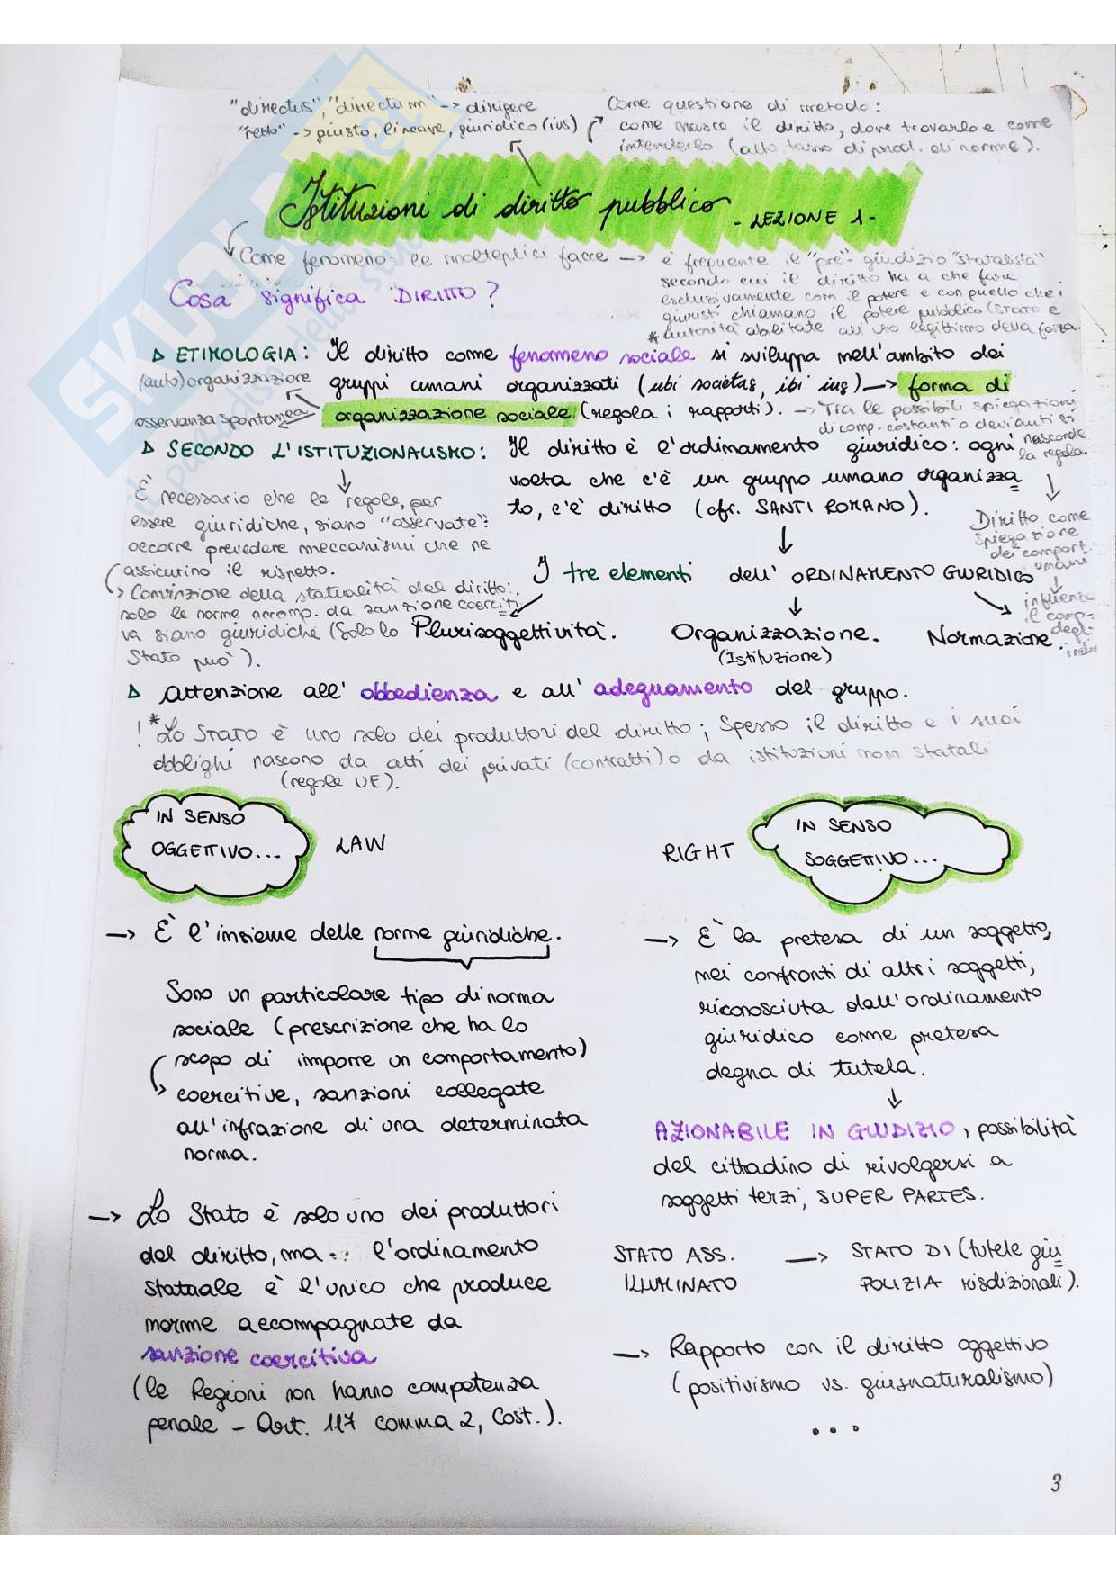 "directus", "directum" -> dirigere
"retto" -> giusto, lineare, giuridico (ius)
Come questione di metodo:
come nasce il diritto, dove trovarlo e come
intenderlo (alto tasso di prod. di norme).
Istituzioni di diritto pubblico - LEZIONE 1 -
Come fenomeno le molteplici facce → è frequente il "pre"-giudizio "statalista"
secondo cui il diritto ha a che fare
esclusivamente con il potere e con quello che i
giuristi chiamano il potere pubblico (Stato e
* autorità abilitate all'uso legittimo della forza.
Cosa significa "DIRITTO"?
▷ ETIMOLOGIA: Il diritto come fenomeno sociale si sviluppa nell'ambito dei
gruppi umani organizzati (ubi societas, ibi ius) → forma di
organizzazione sociale (regola i rapporti).
(auto)organizzazione
osservanza spontanea
→ Tra le possibili spiegazioni
di comp. costanti o devianti si
nasconde
la regola.
▷ SECONDO L'ISTITUZIONALISMO: Il diritto è l'ordinamento giuridico: ogni
volta che c'è un gruppo umano organizza
to, c'è diritto (cfr. SANTI ROMANO).
È necessario che le regole, per
essere giuridiche, siano "osservate":
occorre prevedere meccanismi che ne
assicurino il rispetto.
Convinzione della statualità del diritto:
solo le norme accomp. da sanzione coerciti
va siano giuridiche (Solo lo
Stato può).
Diritto come
spiegazione
dei comport.
umani
influenza
il comp.
degli
I tre elementi dell' ORDINAMENTO GIURIDICO
Plurisoggettività. Organizzazione. Normazione.
(Istituzione)
▷ Attenzione all' obbedienza e all' adeguamento del gruppo.
! * Lo Stato è uno solo dei produttori del diritto; Spesso il diritto e i suoi
obblighi nascono da atti dei privati (contratti) o da istituzioni non statali
(regole UE).
IN SENSO
OGGETTIVO...
LAW
→ È l'insieme delle norme giuridiche.
Sono un particolare tipo di norma
sociale (prescrizione che ha lo
scopo di imporre un comportamento)
coercitive, sanzioni collegate
all'infrazione di una determinata
norma.
→ Lo Stato è solo uno dei produttori
del diritto, ma l'ordinamento
statuale è l'unico che produce
norme accompagnate da
sanzione coercitiva
(le Regioni non hanno competenza
penale - Art. 117 comma 2, Cost.).
RIGHT
IN SENSO
SOGGETTIVO...
→ È la pretesa di un soggetto,
nei confronti di altri soggetti,
riconosciuta dall'ordinamento
giuridico come pretesa
degna di tutela.
AZIONABILE IN GIUDIZIO, possibilità
del cittadino di rivolgersi a
soggetti terzi, SUPER PARTES.
STATO ASS. → STATO DI (tutele giu
ILLUMINATO POLIZIA risdizionali).
→ Rapporto con il diritto oggettivo
(positivismo vs. giusnaturalismo)
...
3